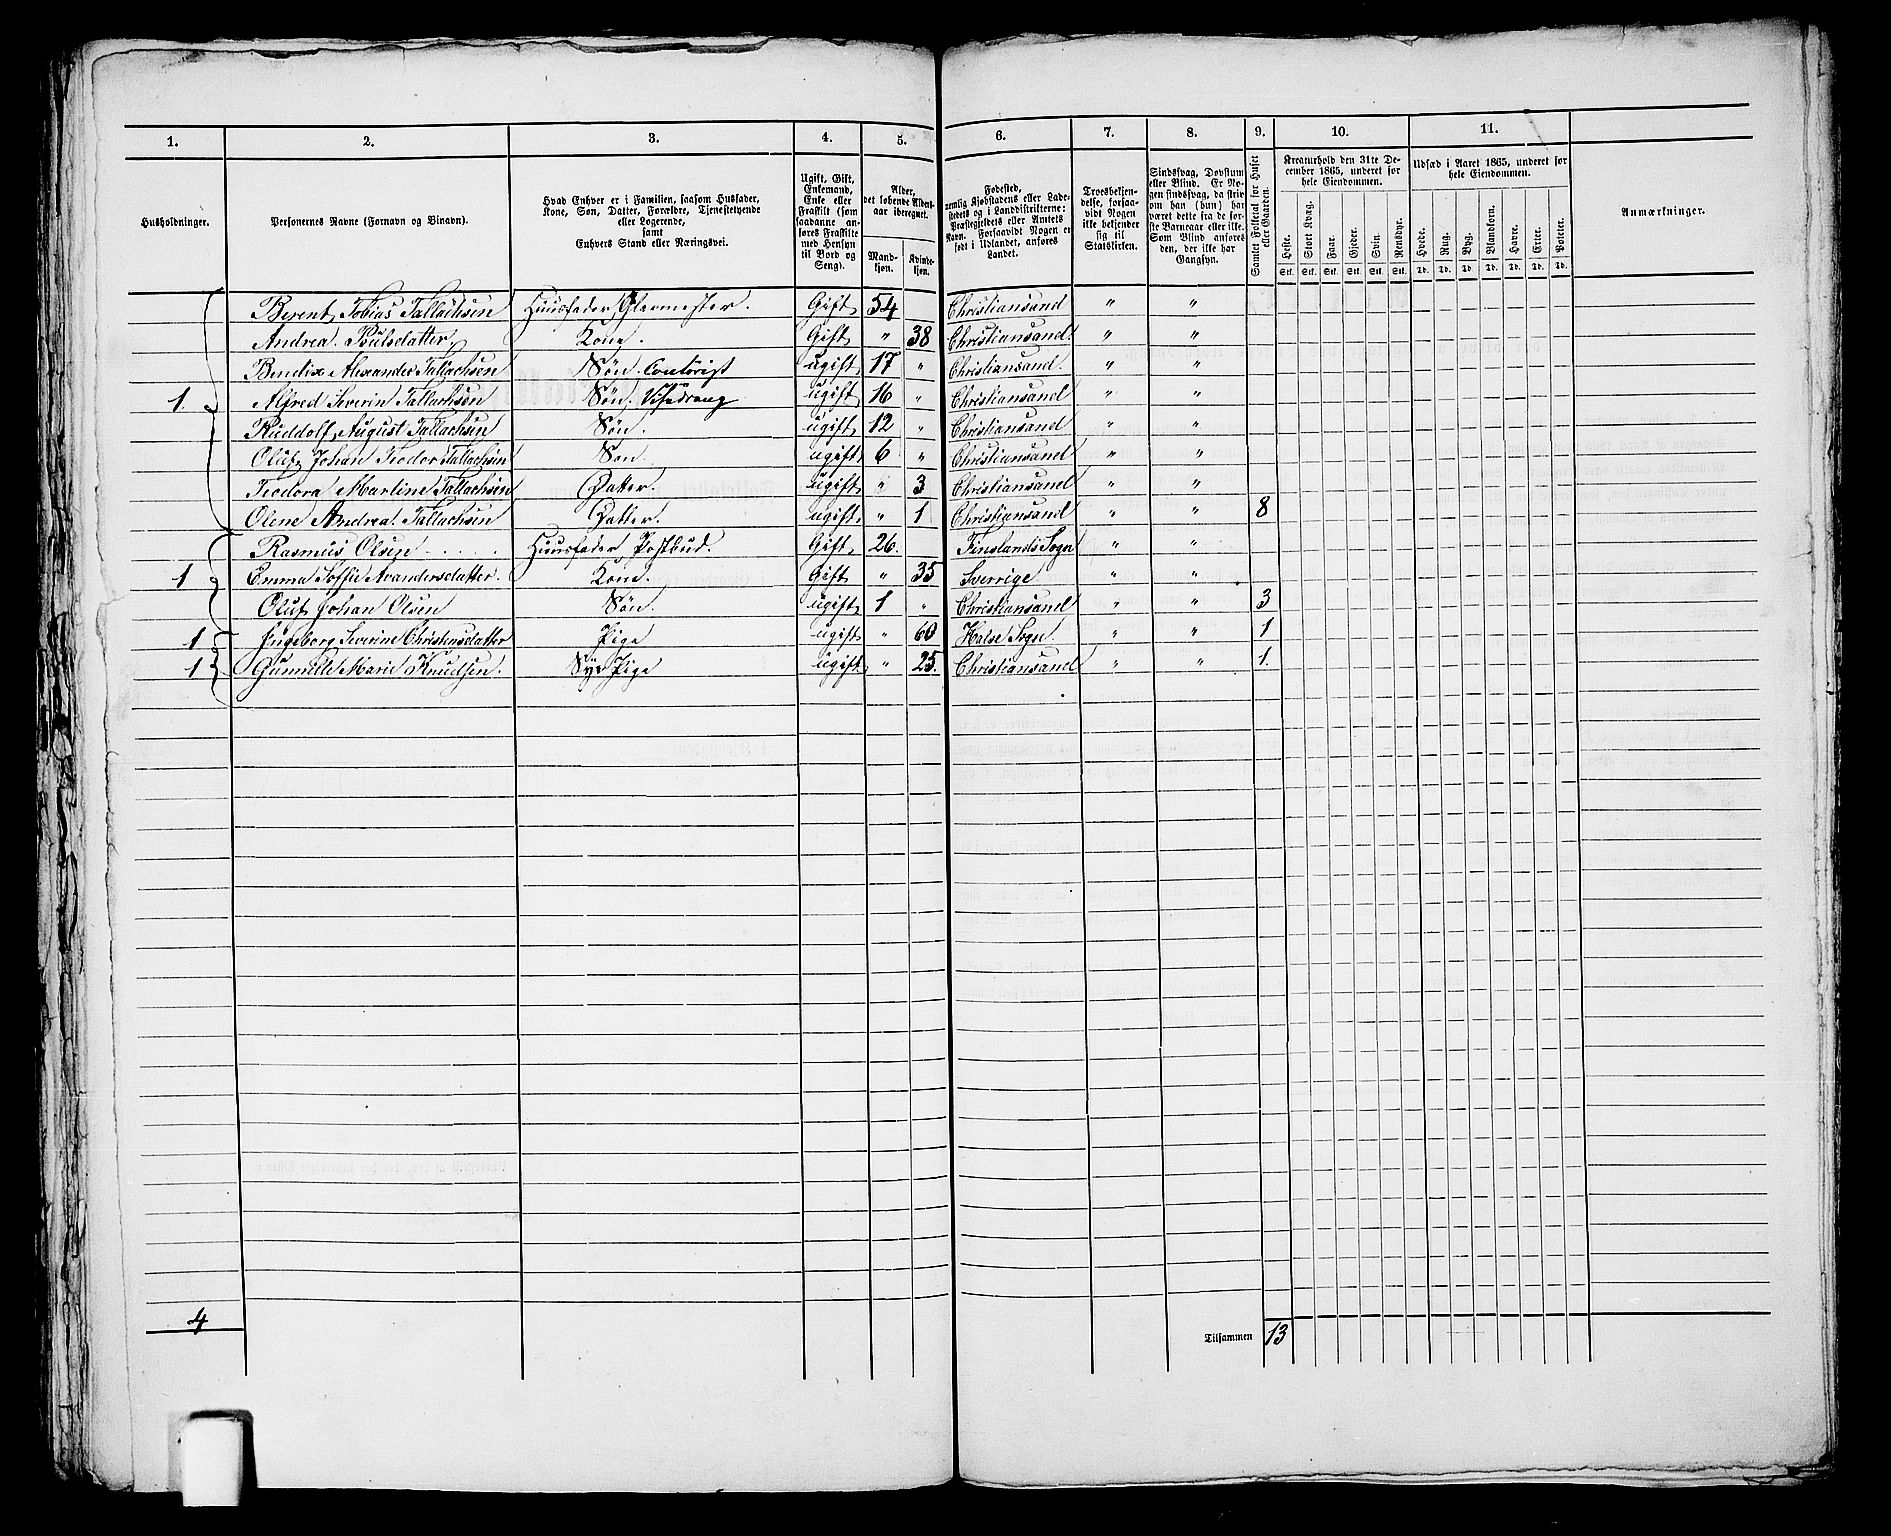 1. 2. 3. 4. 5. 6. 7. 8. 9. 10. 11.
Husholdninger.
Personernes Navne (Fornavn og Binavn).
Hvad Enhver er i Familien, saasom Husfader,
Kone, Søn, Datter, Forældre, Tjenestetyende
eller Logerende,
samt
Enhvers Stand eller Næringsvei.
Ugift, Gift,
Enkemand,
Enke eller
Fraskilt (som
saadanne an-
føres Fraskilte
med Hensyn
til Bord og
Seng).
Alder,
det løbende Alders-
aar iberegnet.
Mand-
kjøn.
Kvinde-
kjøn.
Fødested,
nemlig Kjøbstadens eller Lade-
stedets og i Landdistrikterne:
Præstegjeldets eller Amtets
Navn. Forsaavidt Nogen er
født i Udlandet, anføres
Landet.
Troesbekjen-
delse, forsaa-
vidt Nogen
ikke bekjender
sig til
Statskirken.
Sindssvag, Døvstum
eller Blind. Er No-
gen sindssvag, da skriv
om han (hun) har
været dette fra de før-
ste Barneaar eller ikke.
Som Blind anføres
den, der ikke har
Gangsyn.
Samlet Folketal for Huset
eller Gaarden.
Kreaturhold den 31te De-
cember 1865, underet for
hele Eiendommen.
Heste. Stort Kvæg. Faar. Gjeder. Svin. Rensdyr.
Stk. Stk. Stk. Stk. Stk. Stk.
Udsæd i Aaret 1865, underet for
hele Eiendommen.
Hvede. Rug. Byg. Blandkorn. Havre. Erter. Poteter.
Td. Td. Td. Td. Td. Td. Td.
Anmærkninger.
Berent Tobias Tallachsen Huusfader Glarmester. Gift 54 Christiansand " "
Andrea Poulsdatter Kone. Gift " 38 Christiansand. " "
Bendix Alexander Tallachsen Søn. Contorist ugift 17 " Christiansand. " "
1. Alfred Severin Tallachsen Søn. ugift 16 " Christiansand " "
Ruddolf August Tallachsen Søn. ugift 12 " Christiansand " "
Oluf Johan Teodor Tallachsen Søn. ugift 6 " Christiansand " "
Teodora Martine Tallachsen Datter. ugift " 3 Christiansand " "
Olene Andrea Tallachsen Datter. ugift " 1 Christiansand " " 8
Rasmus Olsen Huusfader Postbud. Gift 26. Finslands Sogn " "
1 Emma Soffie Avandersdatter. Kone. Gift " 35 Sverrige " "
Oluf Johan Olsen Søn. ugift 1 " Christiansand " " 3
1 Ingeborg Severine Christensdatter Pige ugift " 60 Halse Sogn. " " 1
1 Gunnilde Marie Knudsen. Sye Pige ugift " 25. Christiansand " " 1.
4 Tilsammen 13